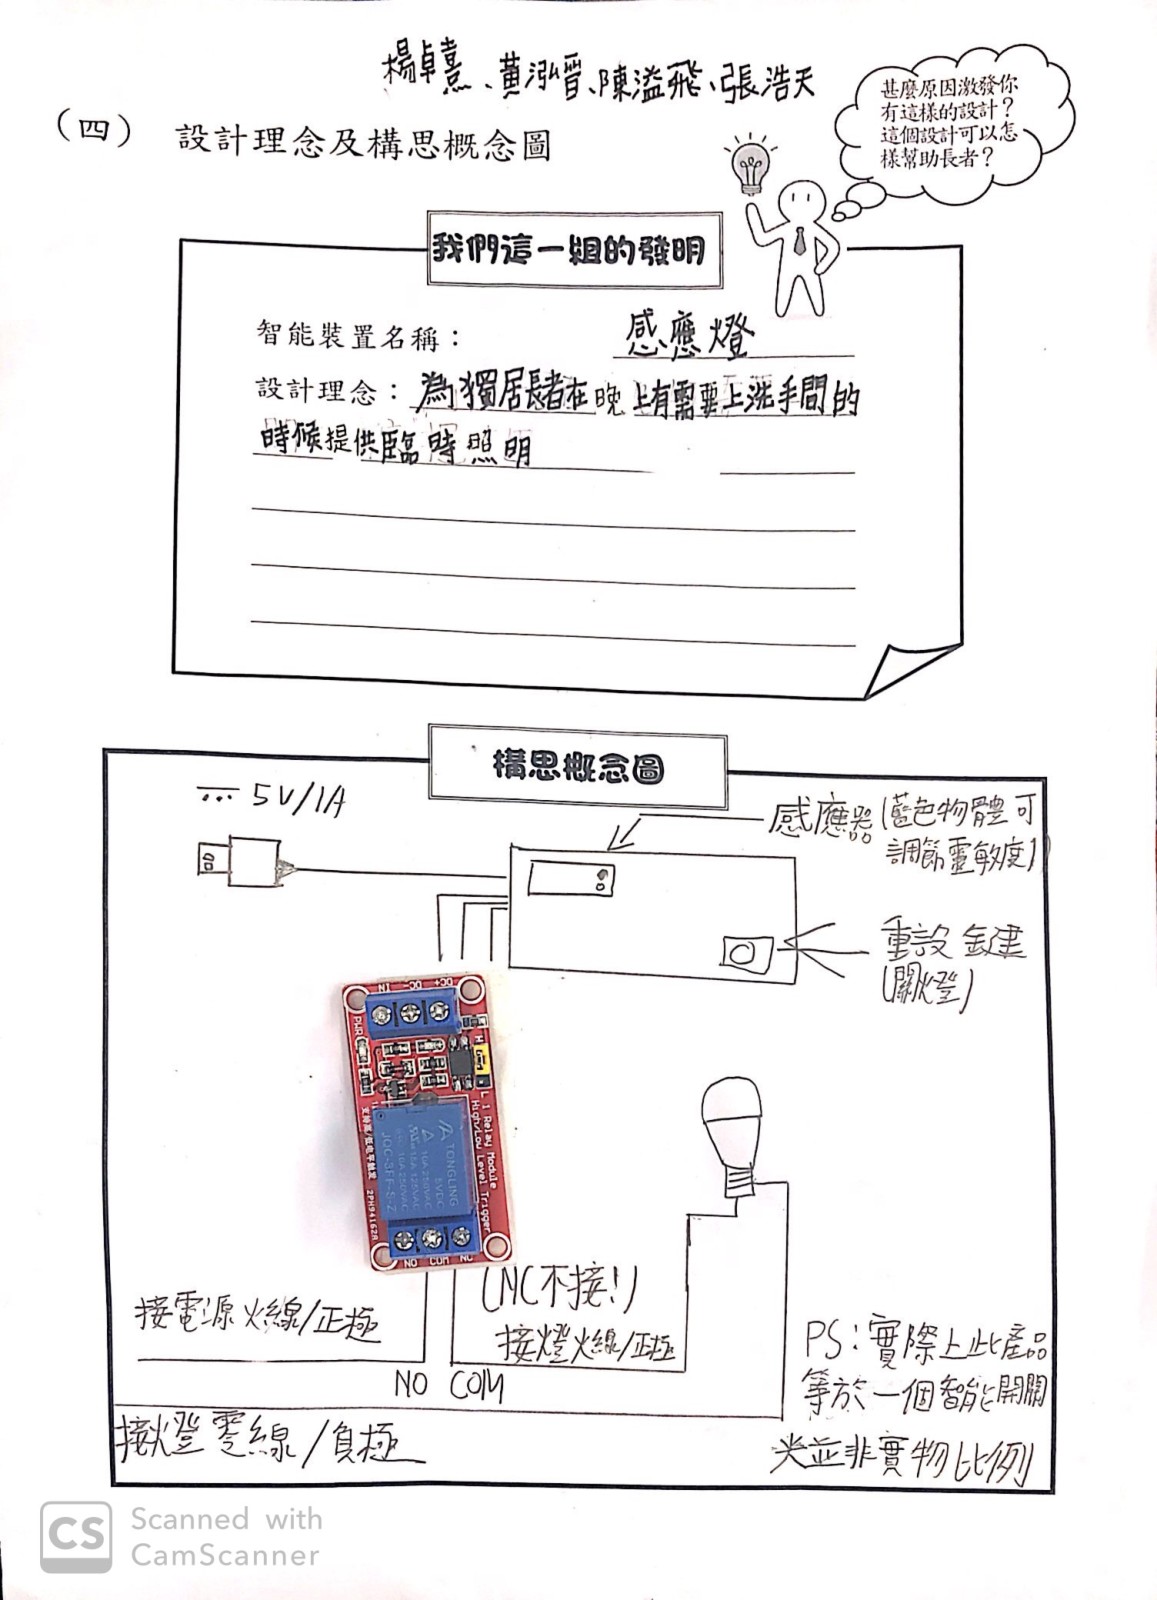 楊卓熹、黃泓晉、陳溢飛、張浩天
甚麼原因激發你
有這樣的設計？
這個設計可以怎
樣幫助長者？
（四） 設計理念及構思概念圖
我們這一組的發明
智能裝置名稱： 感應燈
設計理念：為獨居長者在晚上有需要上洗手間的
時候提供臨時照明
構思概念圖
5V/1A
感應器(藍色物體可
調節靈敏度)
重設鍵
(關燈)
IN DC- DC+
PWR
H
L
1 Relay Module
High/Low Level Trigger
TONGLING
5VDC
10A 250VAC
15A 125VAC
10A 250VAC
JQC-3FF-S-Z
支持高/低电平触发 2PH94162A
NO COM NC
(NC不接!)
接電源火線/正極
接燈火線/正極
NO COM
接燈零線/負極
PS:實際上此產品
等於一個智能開關
並非實物比例
CS
Scanned with
CamScanner